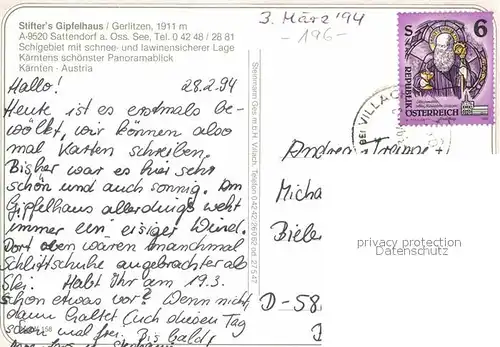 Stifter's Gipfelhaus / Gerlitzen, 1911 m
A-9520 Sattendorf a. Oss. See, Tel. 0 42 48 / 28 81
Schigebiet mit schnee- und lawinensicherer Lage
Kärntens schönster Panoramablick
Kärnten - Austria
3. März '94
-196-
S 6
REPUBLIK
ÖSTERREICH
BEI VILLAC
Hallo! 28.2.94
Heute ist es erstmals be-
wölkt, wir können also
mal Karten schreiben.
Bisher war es hier sehr
schön und auch sonnig. Am
Gipfelhaus allerdings weht
immer ein eisiger Wind.
Dort oben waren manchmal
Schlittschuhe angebrachter als
Ski. Habt Ihr am 19.3.
schon etwas vor? Wenn nicht
dann haltet Euch diesen Tag
schon mal frei. Bis bald!
Steinmann Ges.m.b.H. Villach, Telefon 0 42 42 / 26 0 82
Andrea
Micha
Biele
D-58
privacy protection
Datenschutz